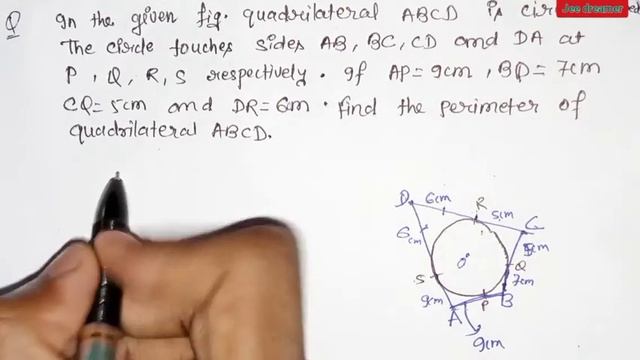 Jee dreamer
Q In the given fig. quadrilateral ABCD is
The circle touches sides AB, BC, CD and DA at
P, Q, R, S respectively. If AP=9cm, BQ=7cm
CQ=5cm and DR=6m. find the perimeter of
quadrilateral ABCD.
D 6cm R 5cm C
6cm 5cm
O Q
S 7cm
9cm P B
A
9cm